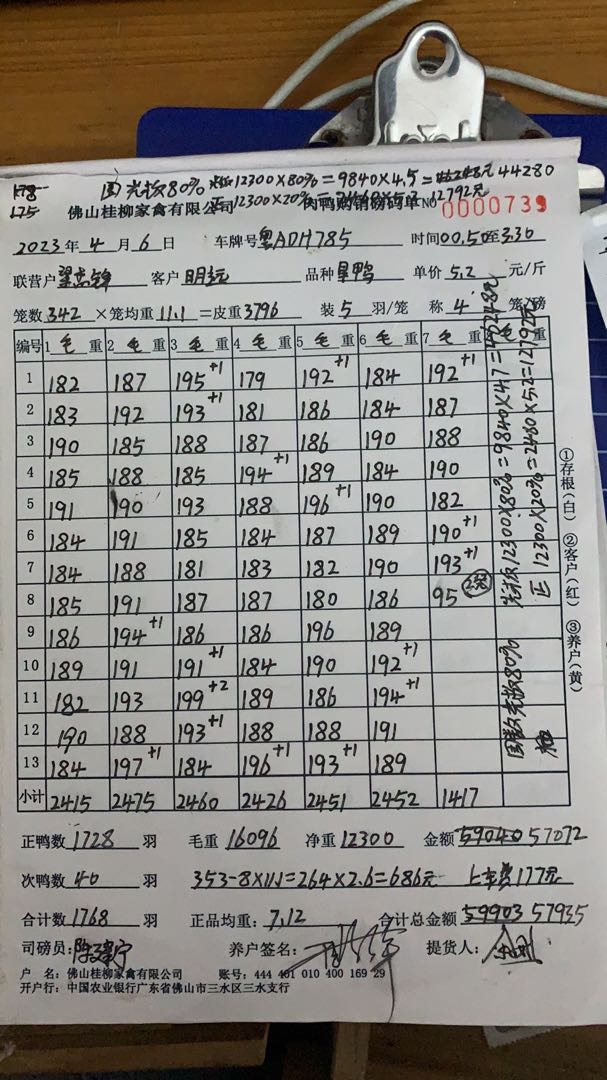 178
175
国 光板80% 光板12300×80%=9840×4.5= 44280
正 12300×20%= 12792元
佛山桂柳家禽有限公司 肉鸭购销磅码单 NO 0000739
2023年4月6日 车牌号粤ADH785 时间00.50至3.30
联营户 客户明 品种 鸭 单价5.2元/斤
笼数342×笼均重11.1=皮重3796 装5羽/笼 称4笼/磅
编号 1毛重 2毛重 3毛重 4毛重 5毛重 6毛重 7毛重 重
1 182 187 195+1 179 192+1 184 192+1
2 183 192 193+1 181 186 184 187
3 190 185 188 187 186 190 188
4 185 188 185 194+1 189 184 190
5 191 190 193 188 196+1 190 182
6 184 191 185 184 187 189 190+1
7 184 188 181 183 182 190 193+1
8 185 191 187 187 180 186 95
9 186 194+1 186 186 196 189
10 189 191 191+1 184 190 192+1
11 182 193 199+2 189 186 194+1
12 190 188 193+1 188 188 191
13 184 197+1 184 196+1 193+1 189
小计 2415 2475 2460 2426 2451 2452 1417
国 光板80% 光板12300×80%=9840×4.7=46248元
正 12300×20%=2460×5.2=12792元
①存根(白) ②客户(红) ③养户(黄)
正鸭数1728羽 毛重16096 净重12300 金额59040 57072
次鸭数40羽 353-8×11.1=264×2.6=686元 上车费177元
合计数1768羽 正品均重:7.12 合计总金额59903 57935
司磅员: 养户签名: 提货人:
户 名:佛山桂柳家禽有限公司 账号:444 461 010 400 169 29
开户行:中国农业银行广东省佛山市三水区三水支行